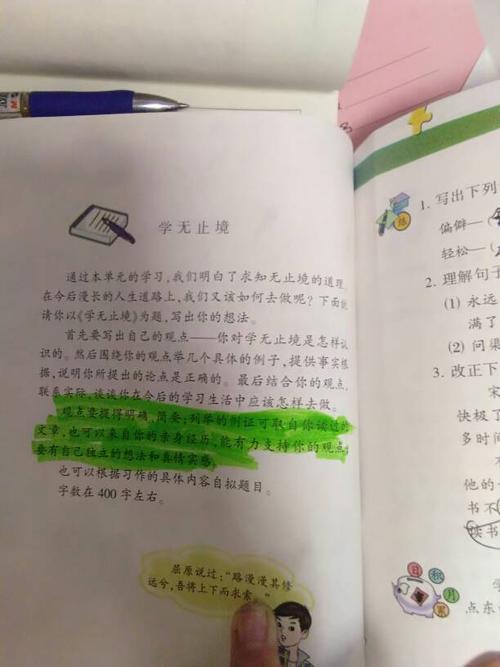 学无止境
通过本单元的学习，我们明白了求知无止境的道理，
在今后漫长的人生道路上，我们又该如何去做呢？下面就
请你以《学无止境》为题，写出你的想法。
首先要写出自己的观点——你对学无止境是怎样认
识的。然后围绕你的观点举几个具体的例子，提供事实根
据，说明你所提出的论点是正确的。最后结合你的观点，
联系实际，谈谈你在今后的学习生活中应该怎样去做。
观点要提得明确、简要；列举的例证可取自你读过的
文章，也可以来自你的亲身经历，能有力支持你的观点；
要有自己独立的想法和真情实感。
也可以根据习作的具体内容自拟题目。
字数在400字左右。
屈原说过：“路漫漫其修
远兮，吾将上下而求索。”
练
1. 写出下列
偏僻—（
轻松—（
2. 理解句子
(1) 永远
满了
(2) 问渠
宋
3. 改正下
快极了
多时间
不
他的
书不
读书
日积月累
点东